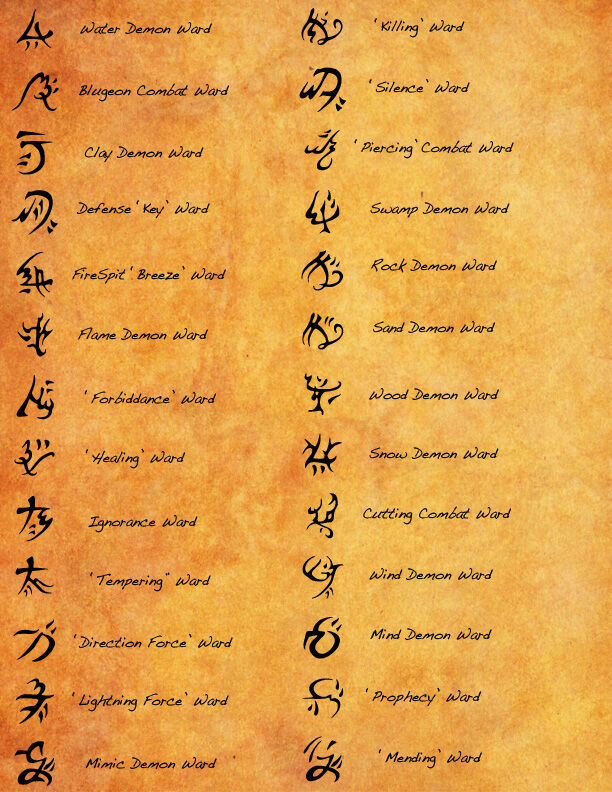 Water Demon Ward
Blugeon Combat Ward
Clay Demon Ward
Defense 'Key' Ward
FireSpit 'Breeze' Ward
Flame Demon Ward
'Forbiddance' Ward
'Healing' Ward
Ignorance Ward
'Tempering" Ward
'Direction Force' Ward
'Lightning Force' Ward
Mimic Demon Ward
'Killing' Ward
'Silence' Ward
'Piercing' Combat Ward
Swamp Demon Ward
Rock Demon Ward
Sand Demon Ward
Wood Demon Ward
Snow Demon Ward
Cutting Combat Ward
Wind Demon Ward
Mind Demon Ward
'Prophecy' Ward
'Mending' Ward